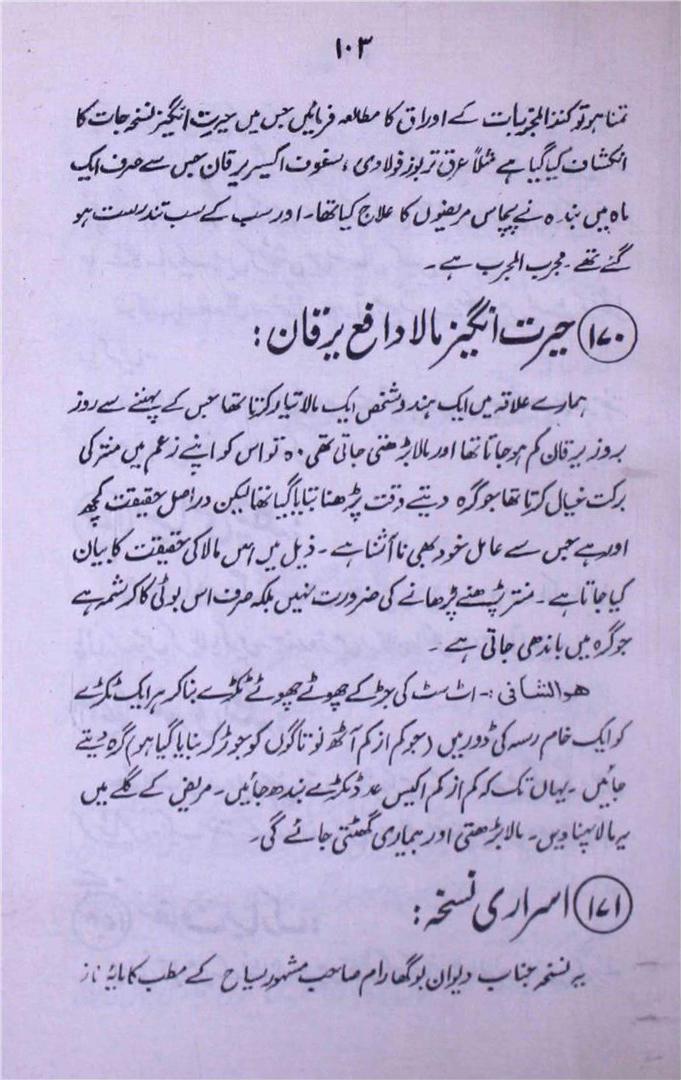 ۱۰۳
تمنا ہو تو کنذ المجربات کے اوراق کا مطالعہ فرمائیں جس میں حیرت انگیز نسخہ جات کا
انکشاف کیا گیا ہے مثلاً عرق تربوز فولادی ، سفوف اکسیر یرقان جس سے صرف ایک
ماہ میں بندہ نے پچاس مریضوں کا علاج کیا تھا۔ اور سب کے سب تندرست ہو
گئے تھے۔ مجرب المجرب ہے۔
۱۷۰ حیرت انگیز مالا دافع یرقان :
ہمارے علاقہ میں ایک ہندو شخص ایک مالا تیار کرتا تھا جس کے پہننے سے روز
بروز یرقان کم ہو جاتا تھا اور مالا بڑھتی جاتی تھی ۔ وہ تو اس کو اپنے زعم میں منتر کی
برکت خیال کرتا تھا جو گرہ دیتے وقت پڑھنا بتایا گیا تھا لیکن دراصل حقیقت کچھ
اور ہے جس سے عامل خود بھی نا آشنا ہے ۔ ذیل میں اس مالا کی حقیقت کا بیان
کیا جاتا ہے ۔ منتر پڑھنے پڑھانے کی ضرورت نہیں بلکہ صرف اس بوٹی کا کرشمہ ہے
جو گرہ میں باندھی جاتی ہے ۔
ھوالشافی :- اٹ سٹ کی جڑ کے چھوٹے چھوٹے ٹکڑے بنا کر ہر ایک ٹکڑے
کو ایک خام رسہ کی ڈور میں (جو کم از کم آٹھ نو تاگوں کو جوڑ کر بنایا گیا ہو) گرہ دیتے
جائیں ۔ یہاں تک کہ کم از کم اکیس عدد ٹکڑے بندھ جائیں ۔ مریض کے گلے میں
یہ مالا پہنا دیں ۔ مالا بڑھتی اور بیماری گھٹتی جائے گی ۔
۱۷۱ اسراری نسخہ :
یہ نسخہ جناب دیوان بوگھا رام صاحب مشہور سیاح کے مطب کا مایۂ ناز